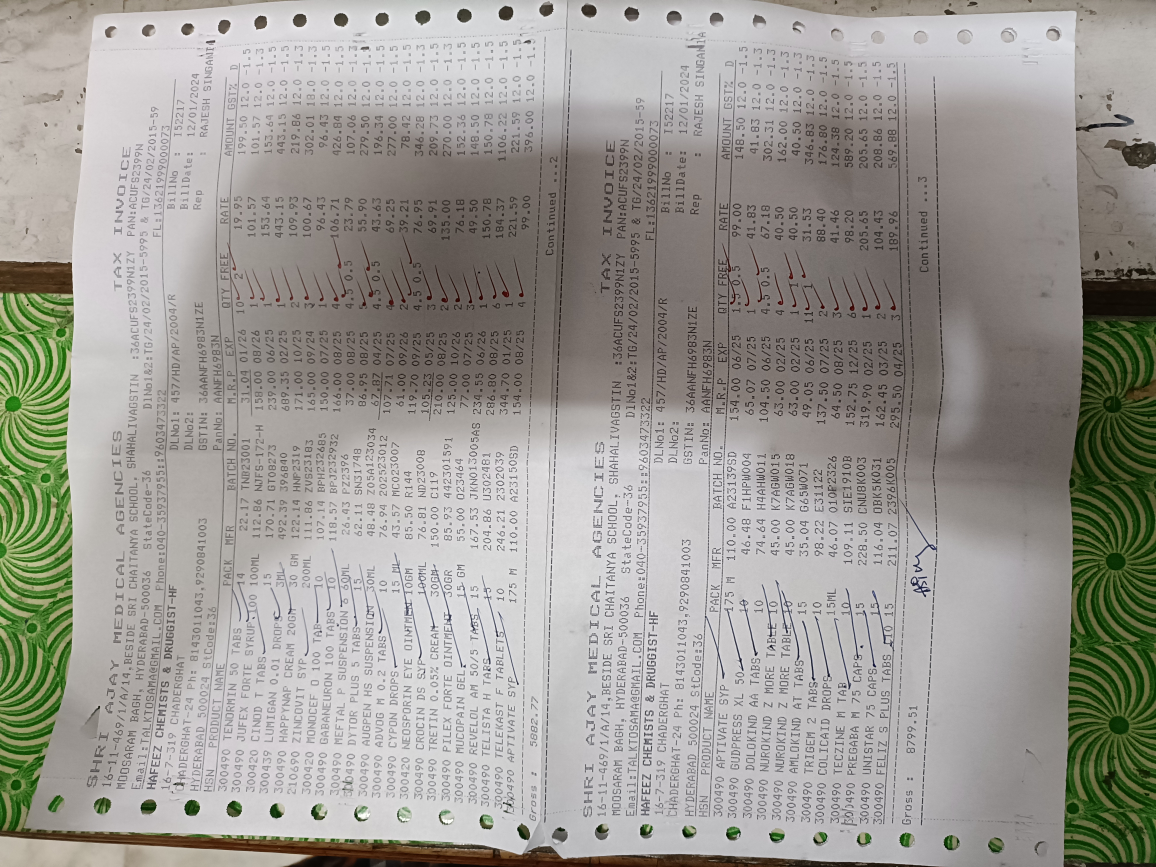 SHRI AJAY MEDICAL AGENCIES TAX INVOICE
16-11-469/1/A/14,BESIDE SRI CHAITANYA SCHOOL, SHAHALIVAGSTIN :36ACUFS2399N1ZY PAN:ACUFS2399N
MOOSARAM BAGH, HYDERABAD-500036 StateCode-36 DlNo1&2:TG/24/02/2015-5995 & TG/24/02/2015-59
Email:TALKTOSAMA@GMAIL.COM Phone:040-35937955::9603473322 FL:13621999000073
HAFEEZ CHEMISTS & DRUGGIST-HF DLNo1: 457/HD/AP/2004/R BillNo : I52217
16-7-319 CHADERGHAT DLNo2: BillDate: 12/01/2024
CHADERGHAT-24 Ph: 8143011043,9290841003 GSTIN: 36AANFH6983N1ZE Rep : RAJESH SINGANIA
HYDERABAD 500024 StCode:36 PanNo: AANFH6983N
HSN PRODUCT NAME PACK MFR BATCH NO. M.R.P EXP QTY FREE RATE AMOUNT GST% D
300490 TENDRMIN 50 TABS 14 22.17 TND23001 31.04 01/26 10 2 19.95 199.50 12.0 -1.5
300490 JUFEX FORTE SYRUP 100 100ML 112.86 NJFS-172-H 158.00 08/26 1 101.57 101.57 12.0 -1.3
300420 CINOD T TABS 15 170.71 GT08273 239.00 06/26 1 153.64 153.64 12.0 -1.5
300439 LUMIGAN 0.01 DROPS 3ML 492.39 396840 689.35 02/25 1 443.15 443.15 12.0 -1.5
300490 HAPPYNAP CREAM 20GM 30 GM 122.14 HNP2319 171.00 10/25 2 109.93 219.86 12.0 -1.3
210690 ZINCOVIT SYP 200ML 111.86 ZVS23183 165.00 09/24 3 100.67 302.01 18.0 -1.3
300420 MONOCEF O 100 TAB 10 107.14 BPH232685 150.00 07/25 1 96.43 96.43 12.0 -1.3
300490 GABANEURON 100 TABS 10 118.57 BPJ232932 166.00 08/25 4 106.71 426.84 12.0 -1.5
300490 MEFTAL P SUSPENSION 6 60ML 26.43 PZ2396 07/26 4.5 0.5 23.79 107.06 12.0 -1.3
300490 DYTOR PLUS 5 TABS 15 62.11 SN31748 86.95 08/25 5 55.90 279.50 12.0 -1.5
300490 AUGPEN HS SUSPENSION 30ML 48.48 Z05A123034 67.87 04/25 4.5 0.5 43.63 196.34 12.0 -1.5
300490 ADVOG M 0.2 TABS 10 76.94 202523012 107.71 07/25 4 69.25 277.00 12.0 -1.5
300490 CYPON DROPS 15 ML 43.57 MC023007 61.00 09/26 2 39.21 78.42 12.0 -1.3
300420 NEOSPORIN EYE OINTMENT 10GM 85.50 R144 119.70 09/26 4.5 0.5 76.95 346.28 12.0 -1.3
300490 CROCIN DS SUSP 100ML 76.81 ND23008 105.23 05/25 3 69.91 209.73 12.0 -1.3
300490 TRETIN 0.05% CREAM 30GM 150.00 C1179 210.00 08/25 2 135.00 270.00 12.0 -1.3
300490 PILEX FORTE OINTMENT 30GR 85.93 442301591 125.00 10/26 2 76.18 152.36 12.0 -1.3
300490 MUCOPAIN GEL 15 GM 55.00 023464 77.00 09/25 3 49.50 148.50 12.0 -1.3
300490 REVELOL AM 50/5 TABS 15 167.53 JKN013005AS 234.55 06/26 1 150.78 150.78 12.0 -1.5
300490 TELISTA H TABS 15 204.86 U302481 286.80 08/25 6 184.37 1106.22 12.0 -1.5
300490 TELEKAST F TABLETS 10 246.21 2302039 344.70 01/25 1 221.59 221.59 12.0 -1.5
300490 APTIVATE SYP 175 M 110.00 A23150SD 154.00 08/25 4 99.00 396.00 12.0 -1.5
Gross : 5882.77
Continued ...2
SHRI AJAY MEDICAL AGENCIES TAX INVOICE
16-11-469/1/A/14,BESIDE SRI CHAITANYA SCHOOL, SHAHALIVAGSTIN :36ACUFS2399N1ZY PAN:ACUFS2399N
MOOSARAM BAGH, HYDERABAD-500036 StateCode-36 DlNo1&2:TG/24/02/2015-5995 & TG/24/02/2015-59
Email:TALKTOSAMA@GMAIL.COM Phone:040-35937955::9603473322 FL:13621999000073
HAFEEZ CHEMISTS & DRUGGIST-HF DLNo1: 457/HD/AP/2004/R BillNo : I52217
16-7-319 CHADERGHAT DLNo2: BillDate: 12/01/2024
CHADERGHAT-24 Ph: 8143011043,9290841003 GSTIN: 36AANFH6983N1ZE Rep : RAJESH SINGANIA
HYDERABAD 500024 StCode:36 PanNo: AANFH6983N
HSN PRODUCT NAME PACK MFR BATCH NO. M.R.P EXP QTY FREE RATE AMOUNT GST% D
300490 APTIVATE SYP 175 M 110.00 A23139SD 154.00 06/25 1.5 0.5 99.00 148.50 12.0 -1.5
300490 GUDPRESS XL 50 10 46.48 F1HPW004 65.07 07/25 1 41.83 41.83 12.0 -1.3
300490 DOLOKIND AA TABS 10 74.64 H4AHW011 104.50 06/25 4.5 0.5 67.18 302.31 12.0 -1.3
300490 NUROKIND Z MORE TABLE 10 45.00 K7AGW015 63.00 02/25 4 40.50 162.00 12.0 -1.3
300490 NUROKIND Z MORE TABLE 10 45.00 K7AGW018 63.00 02/25 1 1 40.50 40.50 12.0 -1.3
300490 AMLOKIND AT TABS 15 35.04 G65W071 49.05 06/25 11 1 31.53 346.83 12.0 -1.3
300490 TRIGEM 2 TABS 10 98.22 E31122 137.50 07/25 2 88.40 176.80 12.0 -1.5
300490 COLICAID DROPS 15ML 46.07 O10F2326 64.50 08/25 3 41.46 124.38 12.0 -1.5
300490 TECZINE M TAB 10 109.11 SIE1910B 152.75 12/25 6 98.20 589.20 12.0 -1.5
300490 PREGABA M 75 CAPS 15 228.50 CNUBK003 319.90 02/25 1 205.65 205.65 12.0 -1.5
300490 UNISTAR 75 CAPS 15 116.04 OBK5K031 162.45 03/25 2 104.43 208.86 12.0 -1.5
300490 FELIZ S PLUS TABS 10 15 211.07 2396K005 295.50 04/25 3 189.96 569.88 12.0 -1.5
Gross : 8799.51
Continued ...3